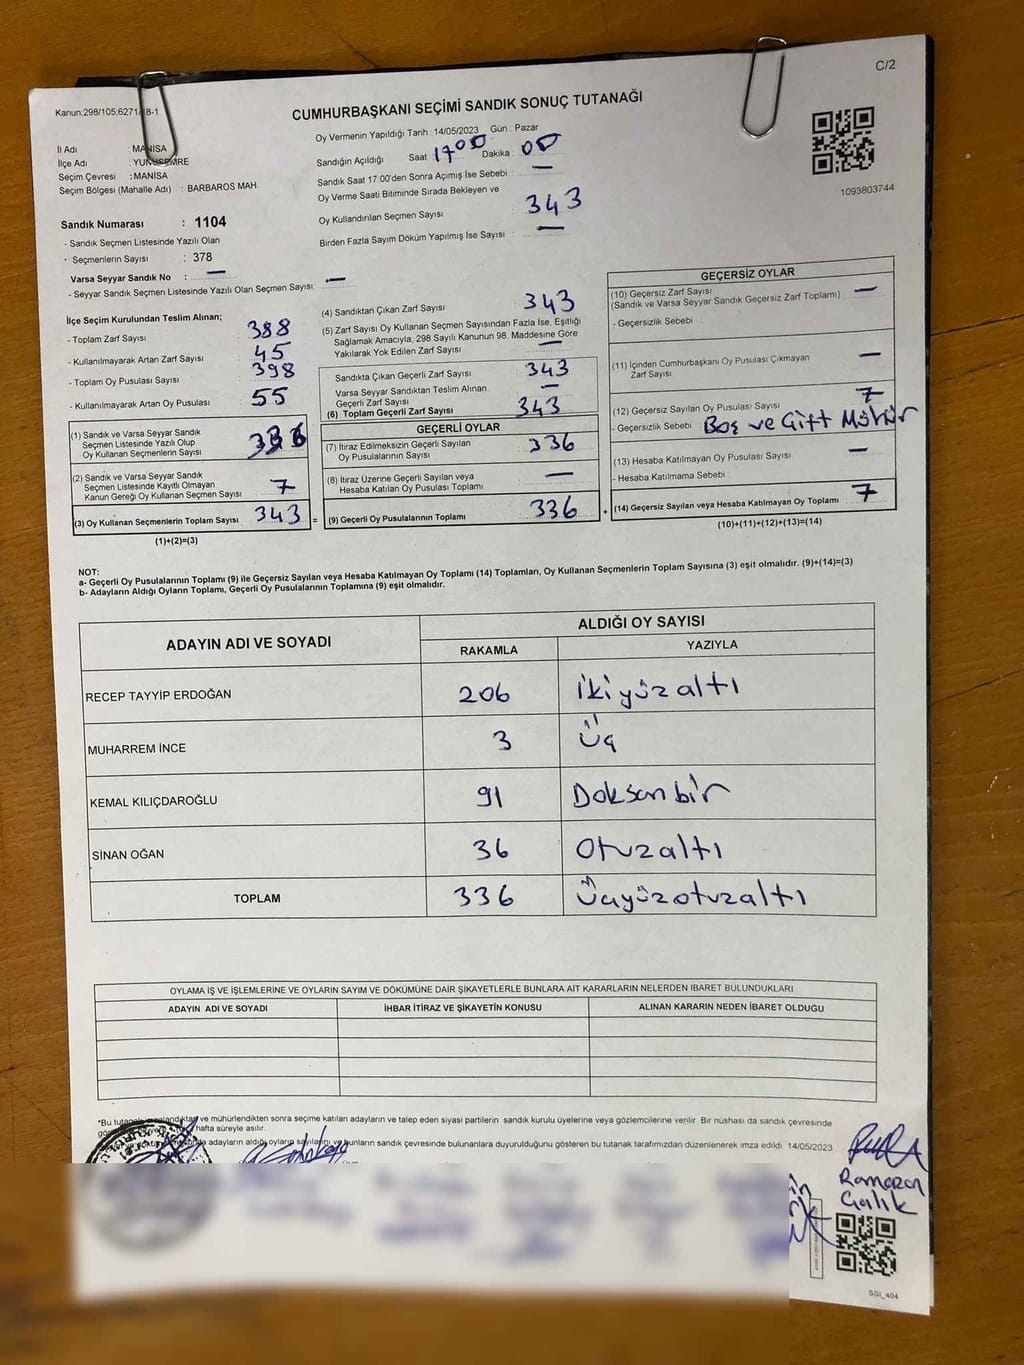 C/2
Kanun;298/105;6271/18-1
CUMHURBAŞKANI SEÇİMİ SANDIK SONUÇ TUTANAĞI
İl Adı : MANİSA
İlçe Adı : YUNUSEMRE
Seçim Çevresi : MANİSA
Seçim Bölgesi (Mahalle Adı) : BARBAROS MAH.
Sandık Numarası : 1104
- Sandık Seçmen Listesinde Yazılı Olan
- Seçmenlerin Sayısı : 378
Varsa Seyyar Sandık No : —
- Seyyar Sandık Seçmen Listesinde Yazılı Olan Seçmen Sayısı: —
Oy Vermenin Yapıldığı Tarih : 14/05/2023 Gün : Pazar
Sandığın Açıldığı Saat 17:00 Dakika : 00
Sandık Saat 17:00'den Sonra Açımış İse Sebebi : —
Oy Verme Saati Bitiminde Sırada Bekleyen ve
Oy Kullandırılan Seçmen Sayısı : 343
Birden Fazla Sayım Döküm Yapılmış İse Sayısı : —
1093803744
İlçe Seçim Kurulundan Teslim Alınan;
- Toplam Zarf Sayısı 388
- Kullanılmayarak Artan Zarf Sayısı 45
- Toplam Oy Pusulası Sayısı 398
- Kullanılmayarak Artan Oy Pusulası 55
(1) Sandık ve Varsa Seyyar Sandık
Seçmen Listesinde Yazılı Olup
Oy Kullanan Seçmenlerin Sayısı 336
(2) Sandık ve Varsa Seyyar Sandık
Seçmen Listesinde Kayıtlı Olmayan
Kanun Gereği Oy Kullanan Seçmen Sayısı 7
(3) Oy Kullanan Seçmenlerin Toplam Sayısı 343 =
(1)+(2)=(3)
(4) Sandıktan Çıkan Zarf Sayısı 343
(5) Zarf Sayısı Oy Kullanan Seçmen Sayısından Fazla İse, Eşitliği
Sağlamak Amacıyla, 298 Sayılı Kanunun 98. Maddesine Göre
Yakılarak Yok Edilen Zarf Sayısı —
Sandıkta Çıkan Geçerli Zarf Sayısı 343
Varsa Seyyar Sandıktan Teslim Alınan
Geçerli Zarf Sayısı —
(6) Toplam Geçerli Zarf Sayısı 343
GEÇERLİ OYLAR
(7) İtiraz Edilmeksizin Geçerli Sayılan
Oy Pusulalarının Sayısı 336
(8) İtiraz Üzerine Geçerli Sayılan veya
Hesaba Katılan Oy Pusulası Toplamı —
(9) Geçerli Oy Pusulalarının Toplamı 336 +
GEÇERSİZ OYLAR
(10) Geçersiz Zarf Sayısı
(Sandık ve Varsa Seyyar Sandık Geçersiz Zarf Toplamı) —
- Geçersizlik Sebebi
(11) İçinden Cumhurbaşkanı Oy Pusulası Çıkmayan
Zarf Sayısı —
(12) Geçersiz Sayılan Oy Pusulası Sayısı 7
- Geçersizlik Sebebi Boş ve Çift Mühür
(13) Hesaba Katılmayan Oy Pusulası Sayısı —
- Hesaba Katılmama Sebebi
(14) Geçersiz Sayılan veya Hesaba Katılmayan Oy Toplamı 7
(10)+(11)+(12)+(13)=(14)
NOT:
a- Geçerli Oy Pusulalarının Toplamı (9) ile Geçersiz Sayılan veya Hesaba Katılmayan Oy Toplamı (14) Toplamları, Oy Kullanan Seçmenlerin Toplam Sayısına (3) eşit olmalıdır. (9)+(14)=(3)
b- Adayların Aldığı Oyların Toplamı, Geçerli Oy Pusulalarının Toplamına (9) eşit olmalıdır.
ADAYIN ADI VE SOYADI ALDIĞI OY SAYISI
RAKAMLA YAZIYLA
RECEP TAYYİP ERDOĞAN 206 İkiyüzaltı
MUHARREM İNCE 3 Üç
KEMAL KILIÇDAROĞLU 91 Doksanbir
SİNAN OĞAN 36 Otuzaltı
TOPLAM 336 Üçyüzotuzaltı
OYLAMA İŞ VE İŞLEMLERİNE VE OYLARIN SAYIM VE DÖKÜMÜNE DAİR ŞİKAYETLERLE BUNLARA AİT KARARLARIN NELERDEN İBARET BULUNDUKLARI
ADAYIN ADI VE SOYADI İHBAR İTİRAZ VE ŞİKAYETİN KONUSU ALINAN KARARIN NEDEN İBARET OLDUĞU
ve mühürlendikten sonra seçime katılan adayların ve talep eden siyasi partilerin sandık kurulu üyelerine veya gözlemcilerine verilir. Bir nüshası da sandık çevresinde
hafta süreyle asılır.
adayların aldığı oyların sayılarını ve bunların sandık çevresinde bulunanlara duyurulduğunu gösteren bu tutanak tarafımızdan düzenlenerek imza edildi. 14/05/2023
Ramazan
Çalık
SSI_404